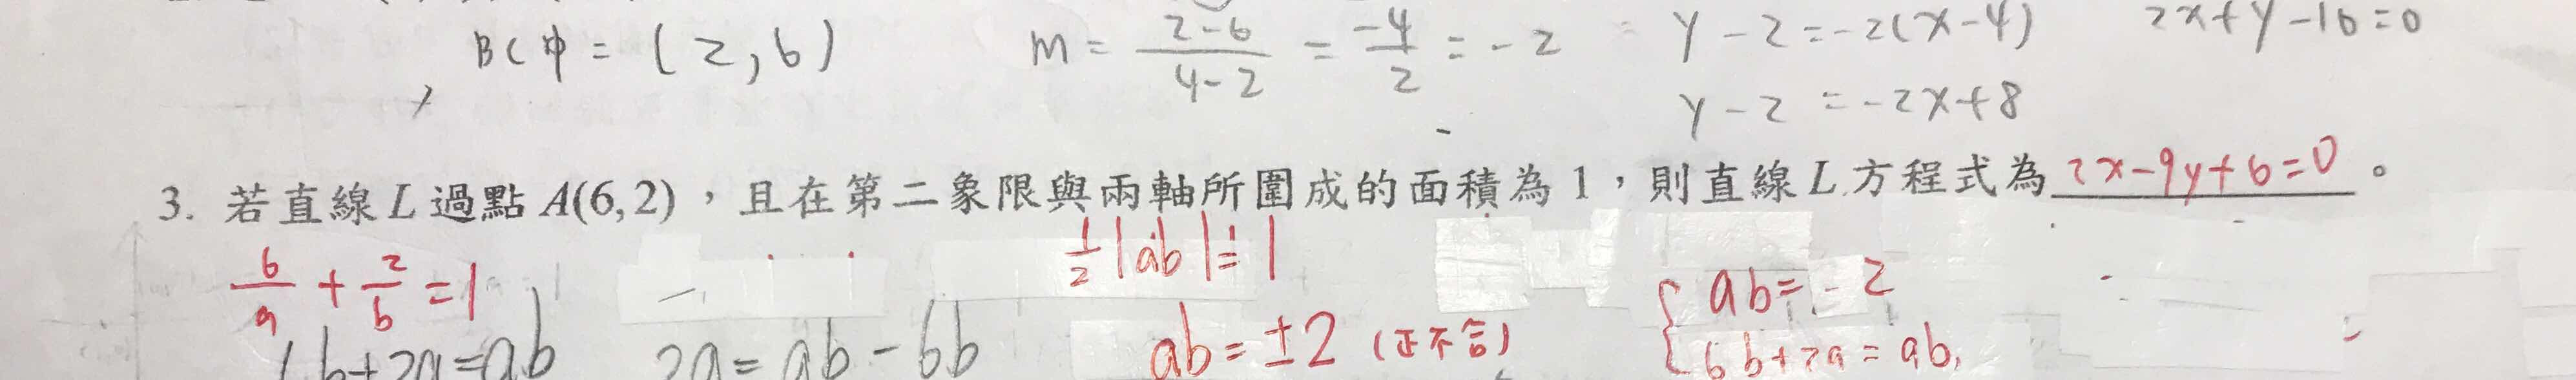 BC中 = (2,6) m = 2-6/4-2 = -4/2 = -2 y-2=-2(x-4) 2x+y-10=0
y-2=-2x+8
3. 若直線 L 過點 A(6,2),且在第二象限與兩軸所圍成的面積為 1,則直線 L 方程式為 2x-9y+6=0 。
6/a + 2/b = 1 1/2|ab|=1 { ab=-2
6b+2a=ab 2a=ab-6b ab=±2 (正不合) 6b+2a=ab,